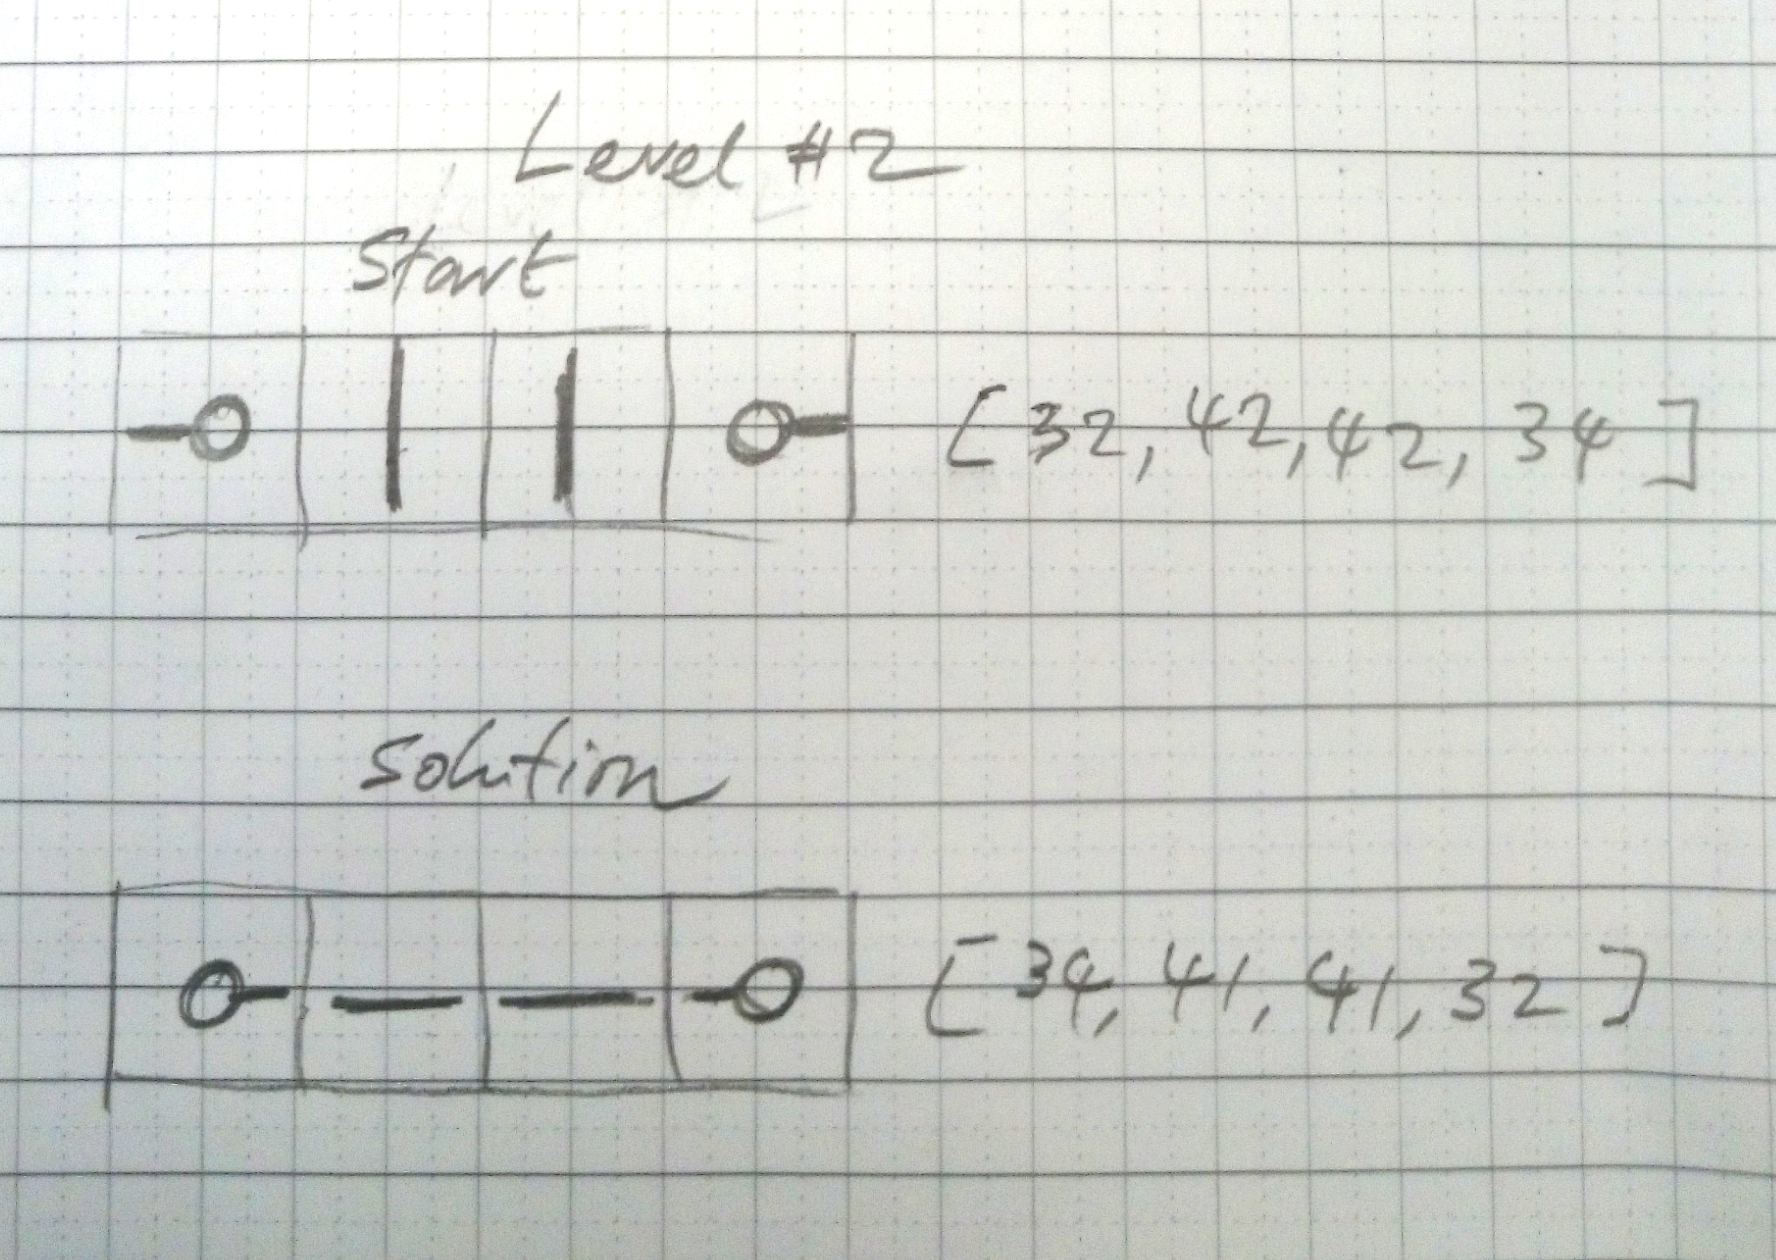 Level #2
Start
[32, 42, 42, 34]
solution
[34, 41, 41, 32]